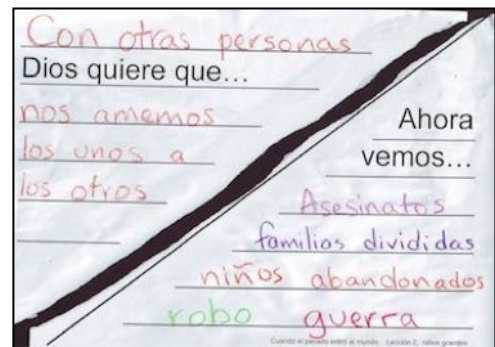 Con otras personas
Dios quiere que...
nos amemos
los unos a
los otros
Ahora
vemos...
Asesinatos
familias divididas
niños abandonados
robo guerra
Cuando el pecado entró al mundo. Lección 2, niños grandes